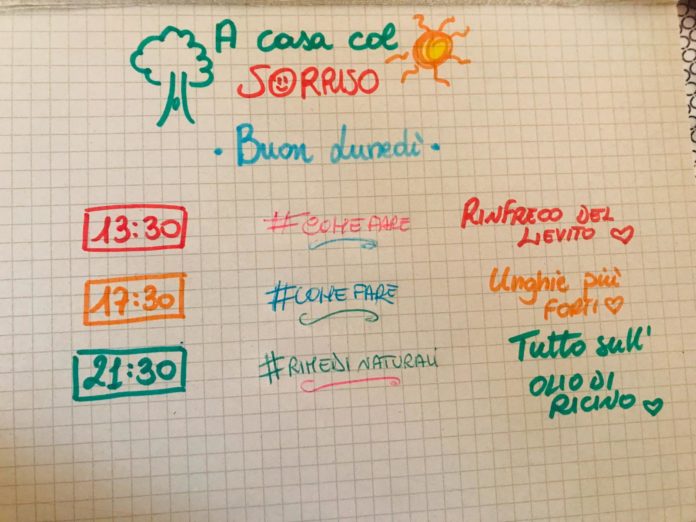 A casa col
SORRISO
• Buon Lunedì •
13:30 #COMEFARE RINFRESCO DEL
LIEVITO ♡
17:30 #COMEFARE Unghie più
FORTI ♡
21:30 #RIMEDINATURALI Tutto sull'
OLIO DI
RICINO ♡